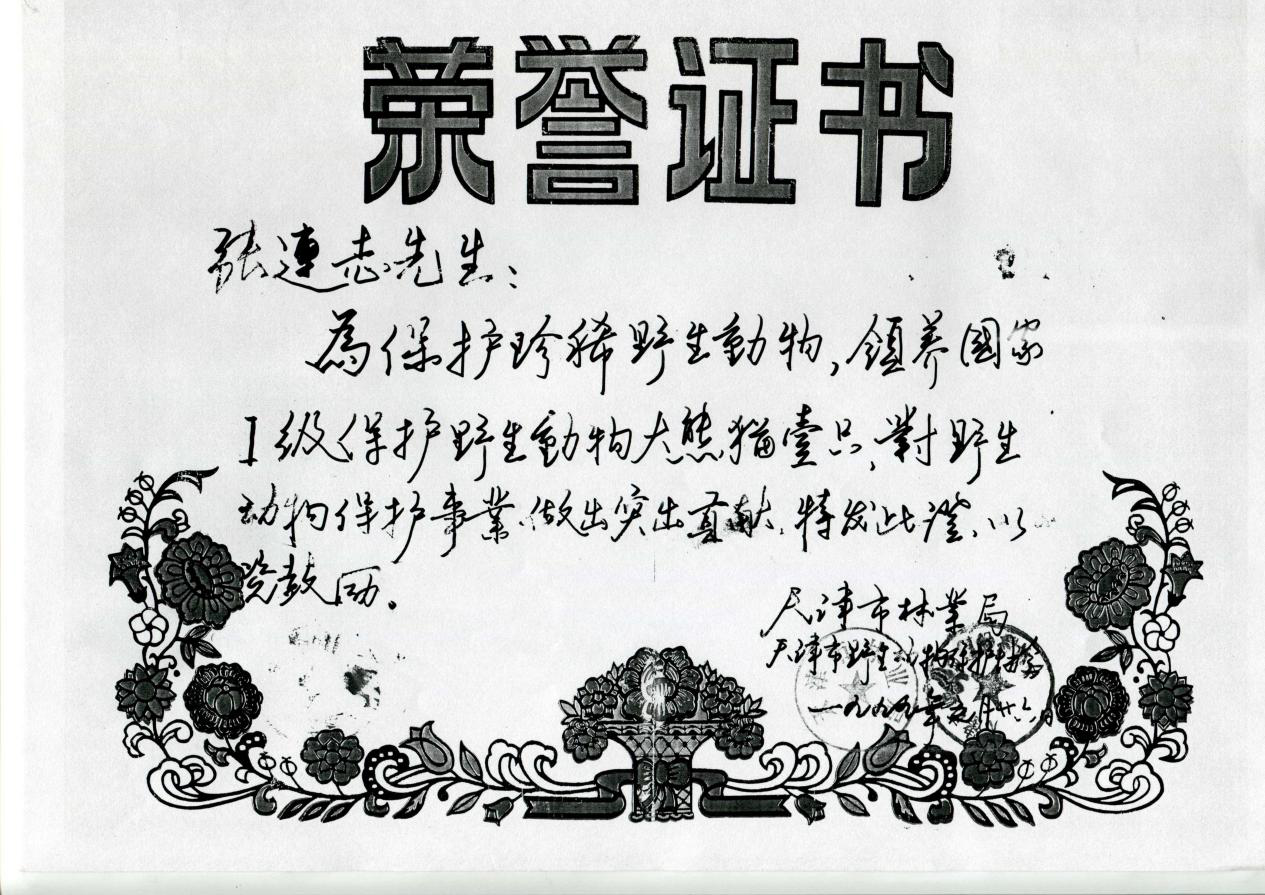 荣誉证书
张連志先生：
為保护珍稀野生動物，領养國家
I级保护野生動物大熊猫壹只，對野生
动物保护事業做出突出貢献，特发此證，以
资鼓励。
天津市林業局
天津市野生动物保护协会
一九九九年五月廿六日